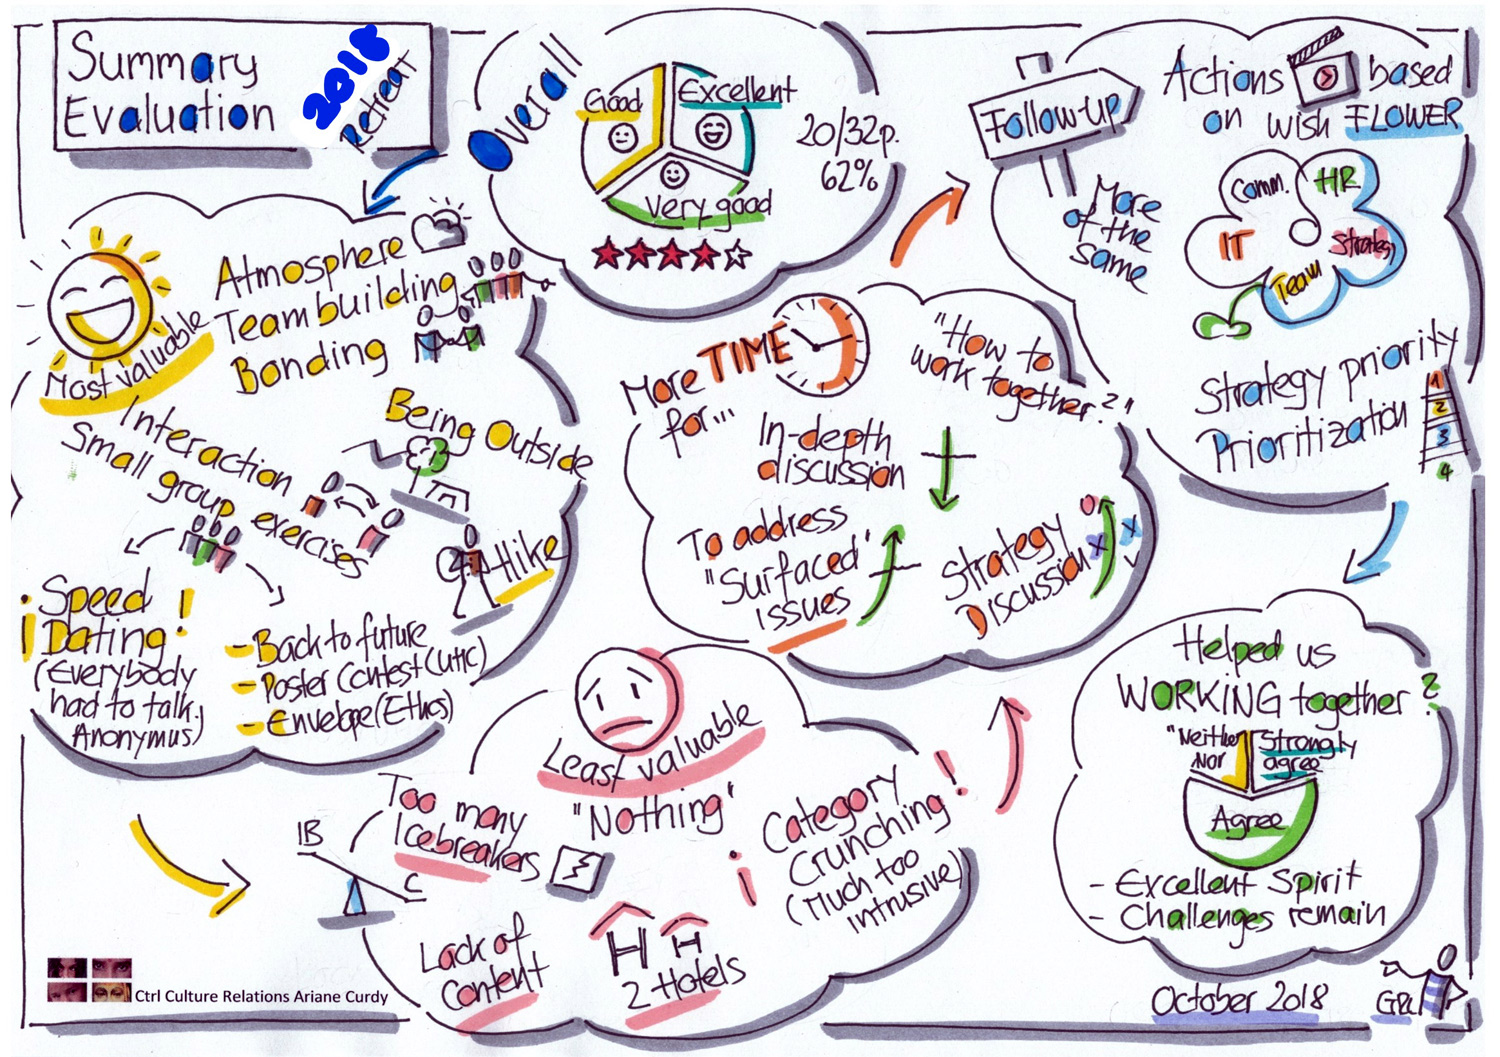 Summary
Evaluation
2018
Retreat
Overall
Good
Excellent
Very good
20/32p.
62%
Follow-up
More
of the
same
Actions based
on wish FLOWER
Comm.
HR
IT
Strategy
Team
Strategy priority
Prioritization
1
2
3
4
Most valuable
Atmosphere
Teambuilding
Bonding
Being Outside
Interaction
Small group exercises
Hike
¡Speed
Dating!
(Everybody
had to talk,
Anonymus)
- Back to future
- Poster Contest (Critic)
- Envelope (Ethos)
More TIME
for...
"How to
work together?"
In-depth
discussion
To address
"Surfaced"
issues
Strategy
Discussion
Least valuable
"Nothing"
Too many
Icebreakers
IB
C
Lack of
Content
2 Hotels
¡Category
Crunching!
(Much too
intrusive)
Helped us
WORKING together?
"Neither
Nor
Strongly
agree
Agree
- Excellent Spirit
- Challenges remain
October 2018
Ctrl Culture Relations Ariane Curdy